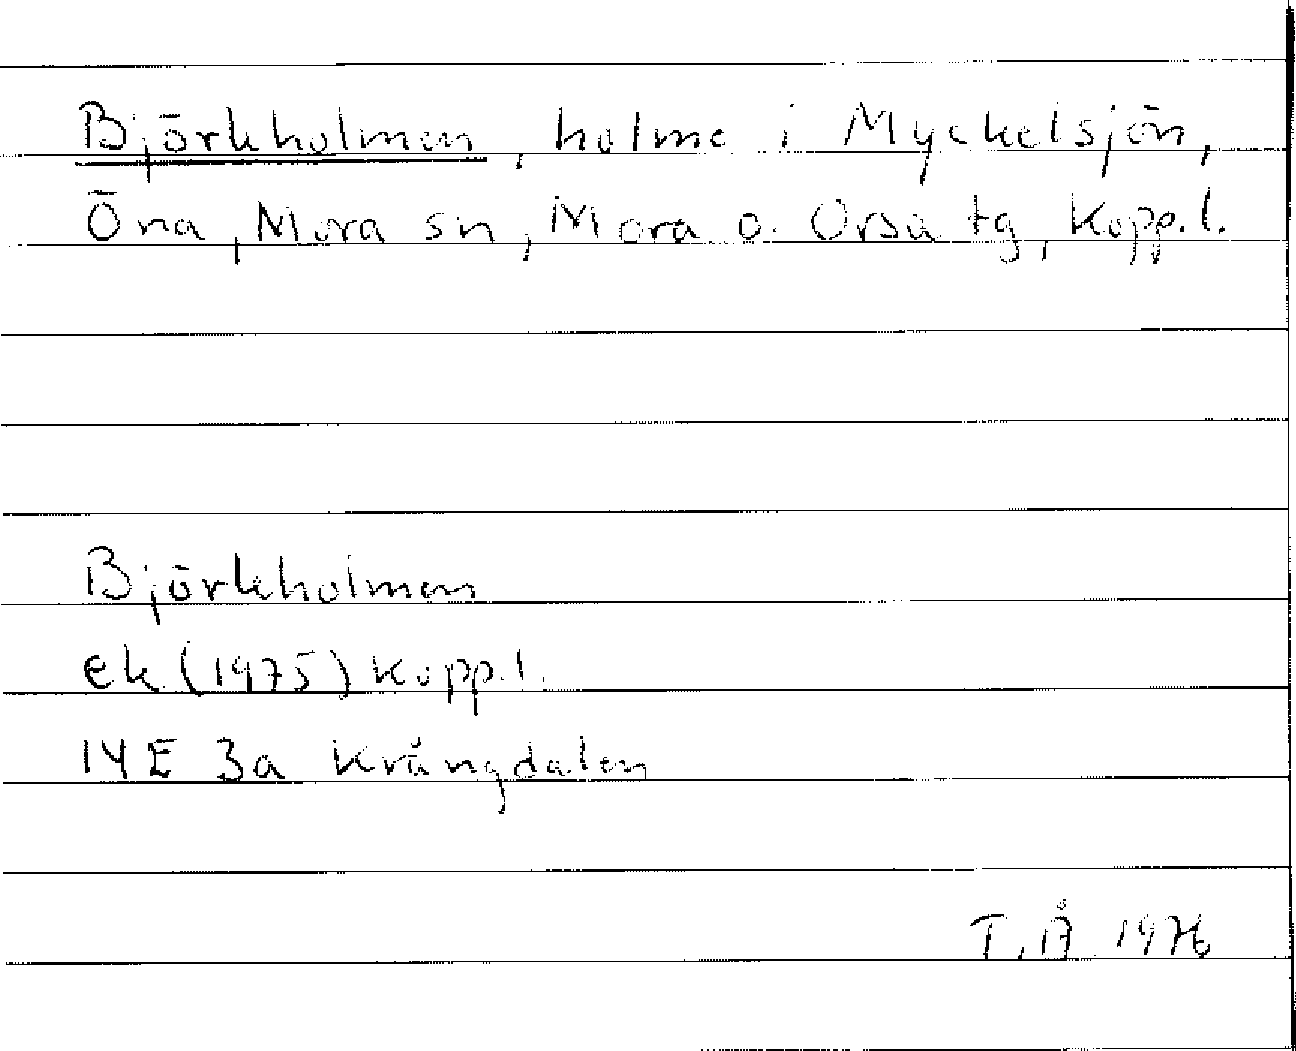 Björkholmen, holme i Myckelsjön,
Öna, Mora sn, Mora o. Orsa tg, Kopp.l.
Björkholmen
ek (1975) Kopp.l.
14E 3a Krångdalen
T.Å 1976